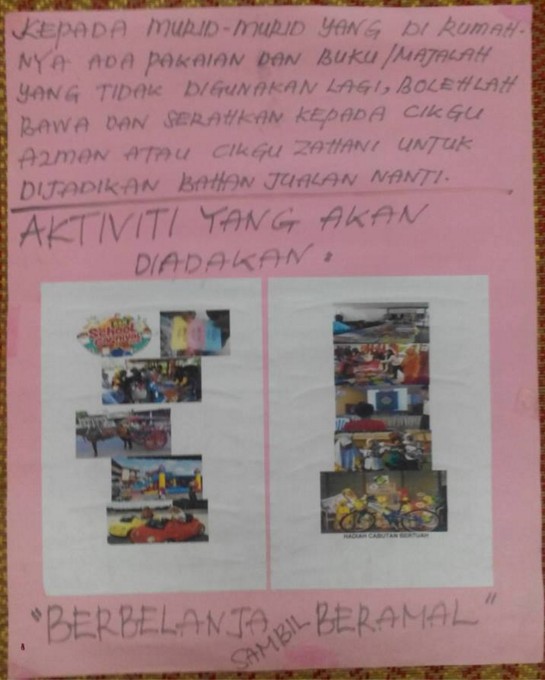 KEPADA MURID-MURID YANG DI RUMAH-
NYA ADA PAKAIAN DAN BUKU/MAJALAH
YANG TIDAK DIGUNAKAN LAGI, BOLEHLAH
BAWA DAN SERAHKAN KEPADA CIKGU
AZMAN ATAU CIKGU ZAHANI UNTUK
DIJADIKAN BAHAN JUALAN NANTI.
AKTIVITI YANG AKAN
DIADAKAN :
SCHOOL
HADIAH CABUTAN BERTUAH
"BERBELANJA SAMBIL BERAMAL"